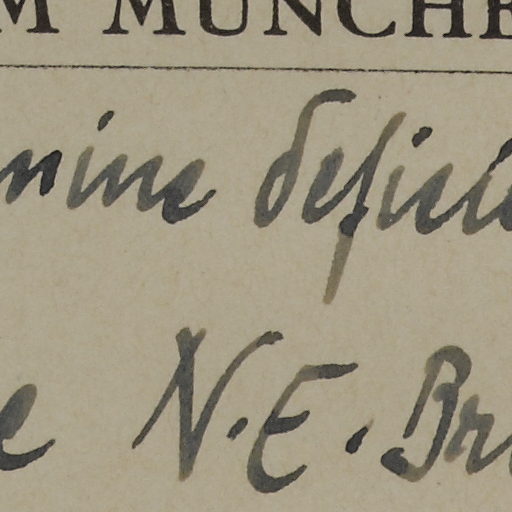 M MÜNCHE
nine defici
e N.E. Br